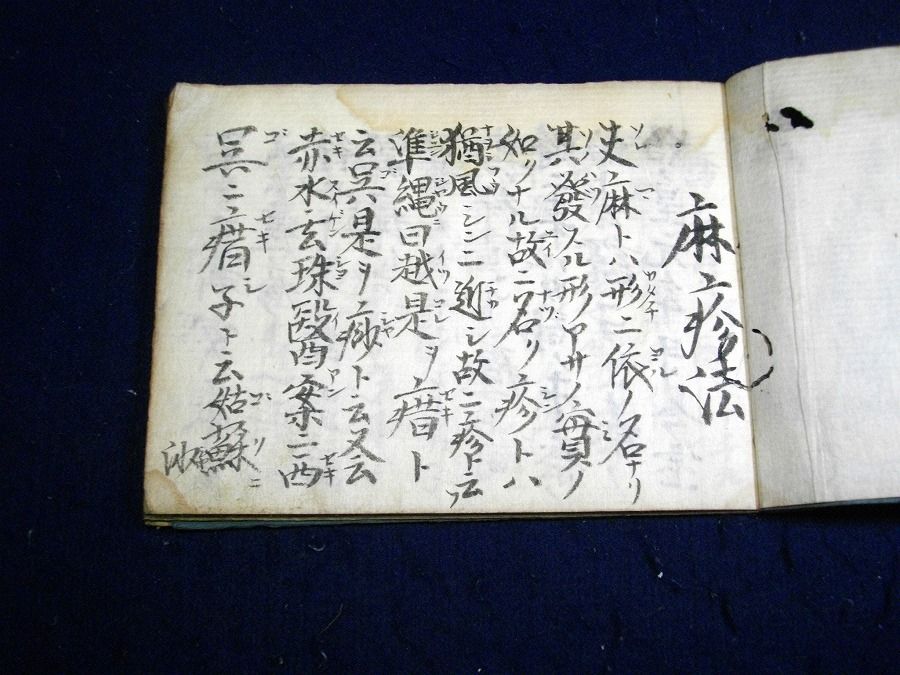 麻疹法
夫麻トハ形ニ依ノ名ナリ
其發スル形アサノ實ノ
如リナル故ニ名リ疹トハ
猶風シンニ近シ故ニ疹ト云
準縄曰越是ヲ𤺋ト
云呉是ヲ痧ト云又云
赤水玄珠醫案ニ西
呉ニ𤺋子ト云姑蘇